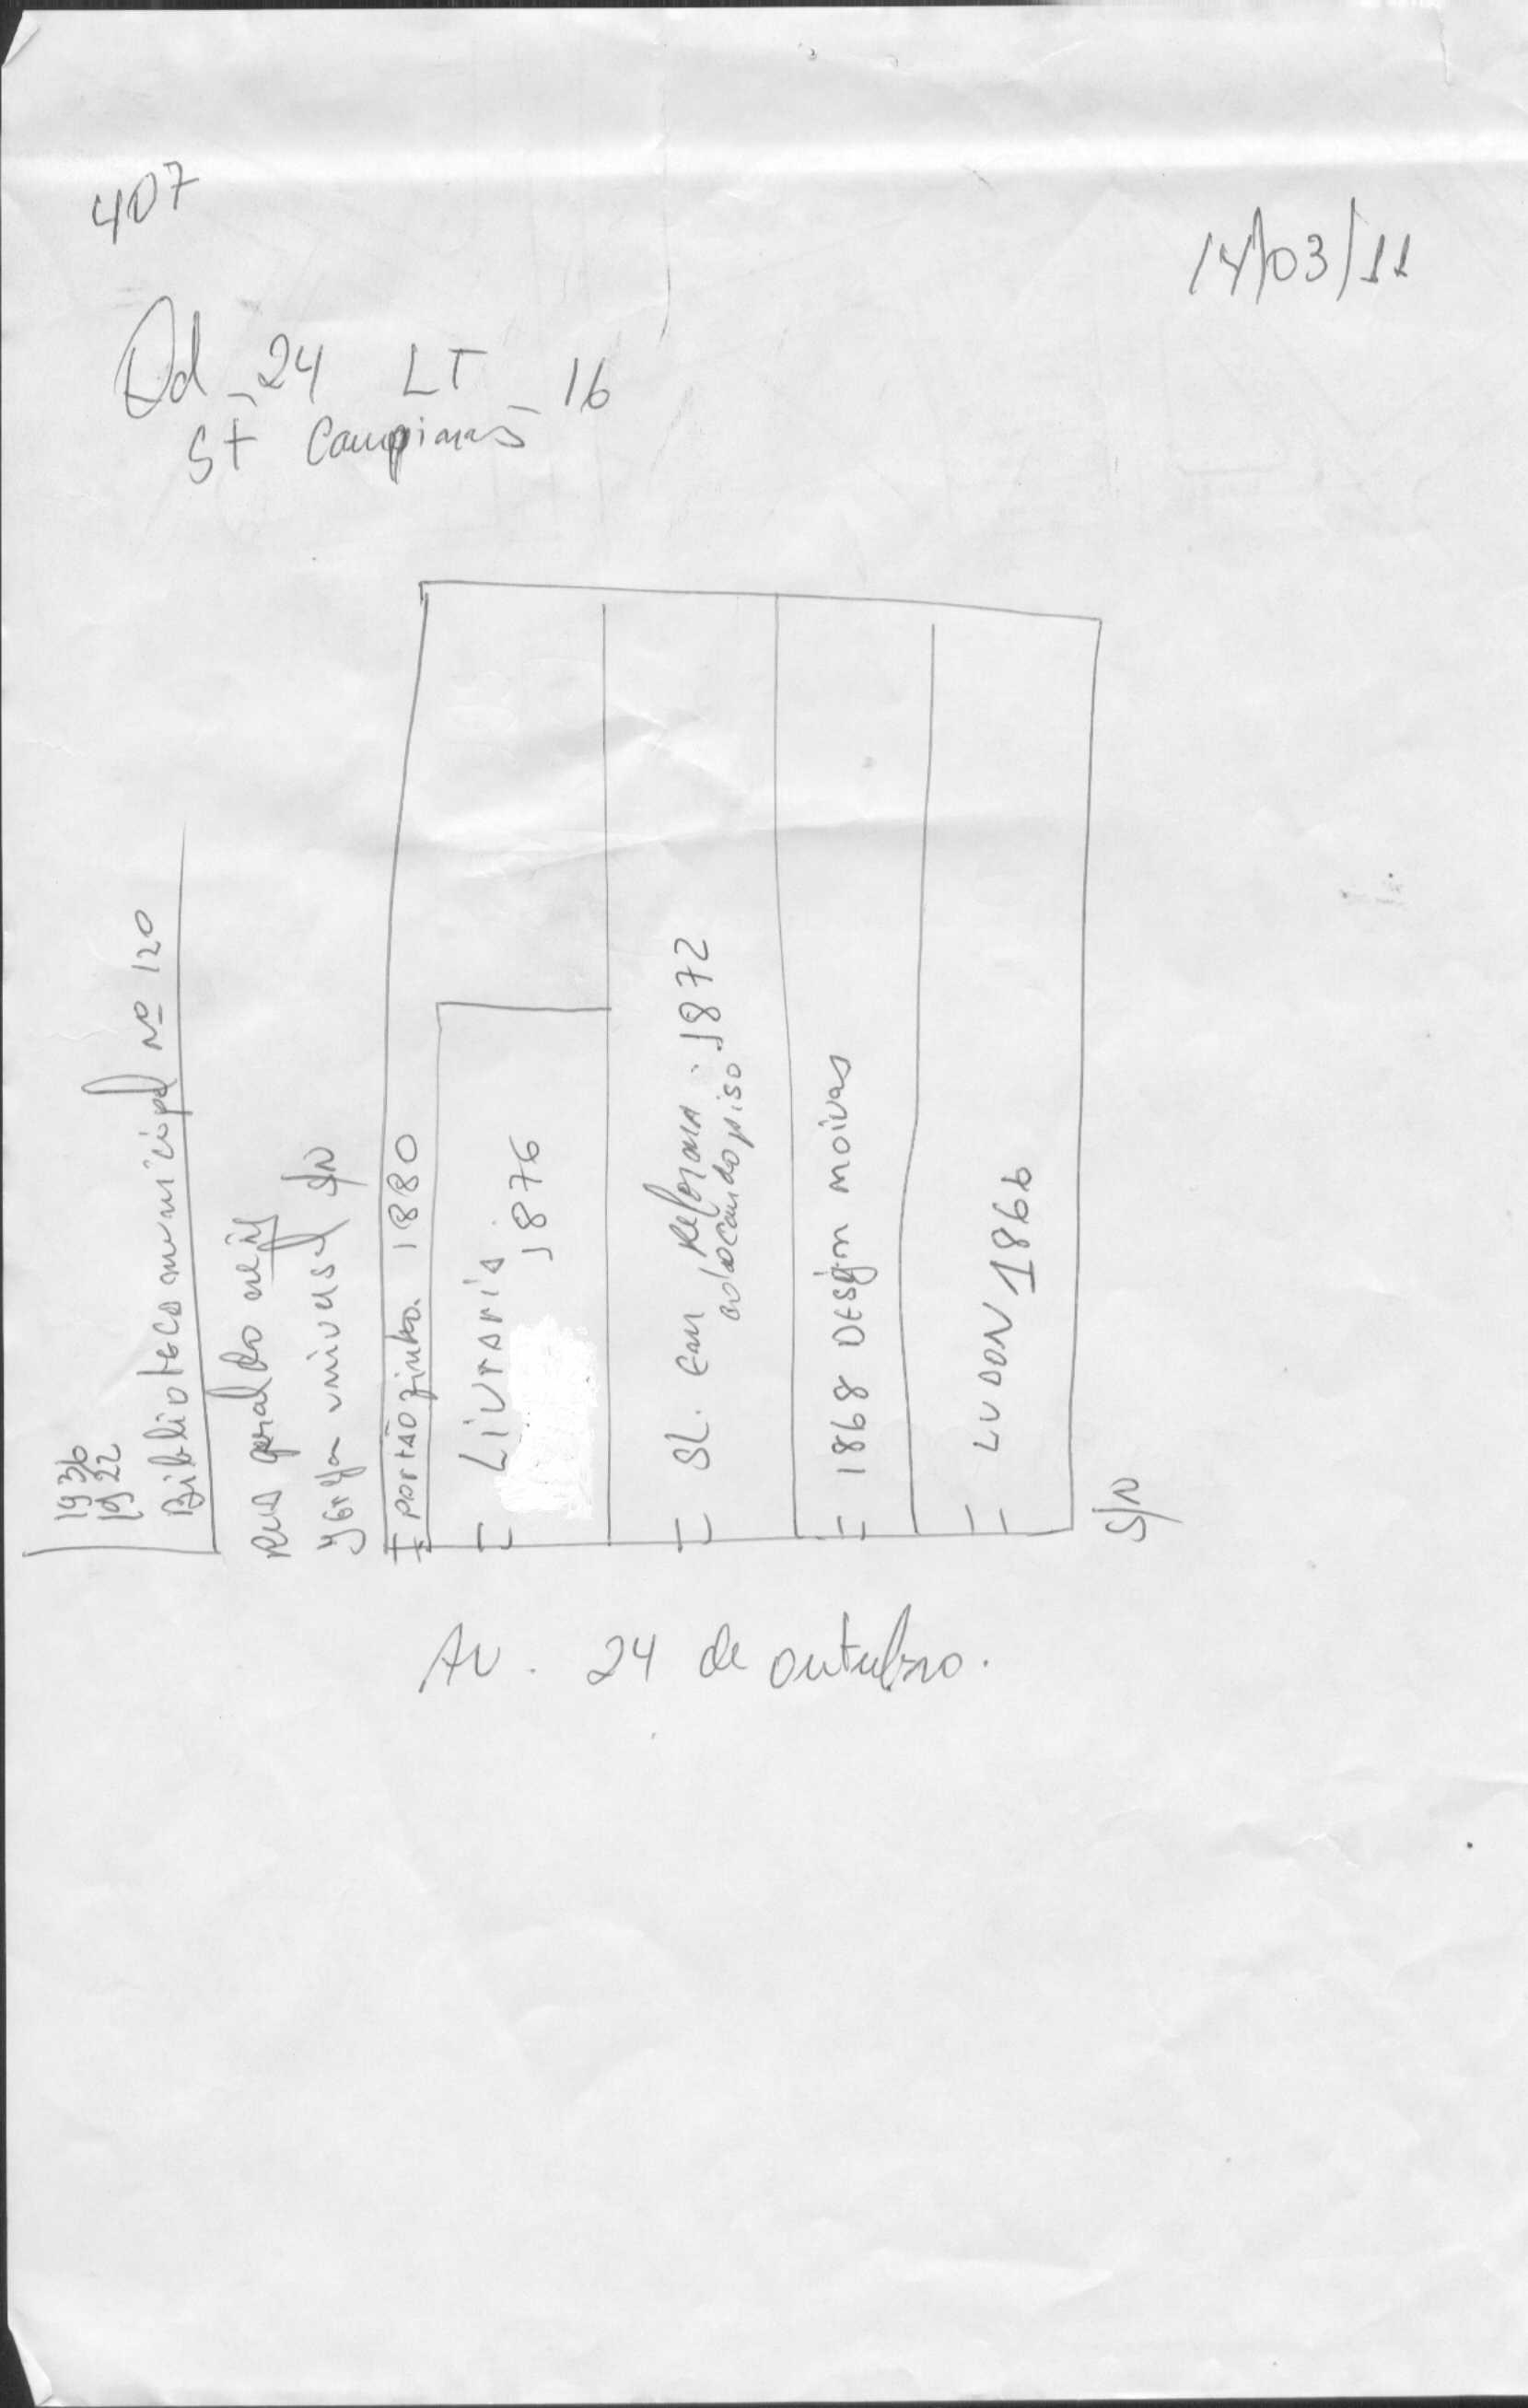 407
14/03/11
Qd - 24 LT - 16
St Campinas
1936
1922
Biblioteca municipal Nº 120
Rua geraldo neij
Igreja universal S/N
portãozinho. 1880
Livraria
1876
SL. em Reforma. 1872
colocando piso
1868 DESign noivas
LUDON 1866
S/N
AV. 24 de outubro.